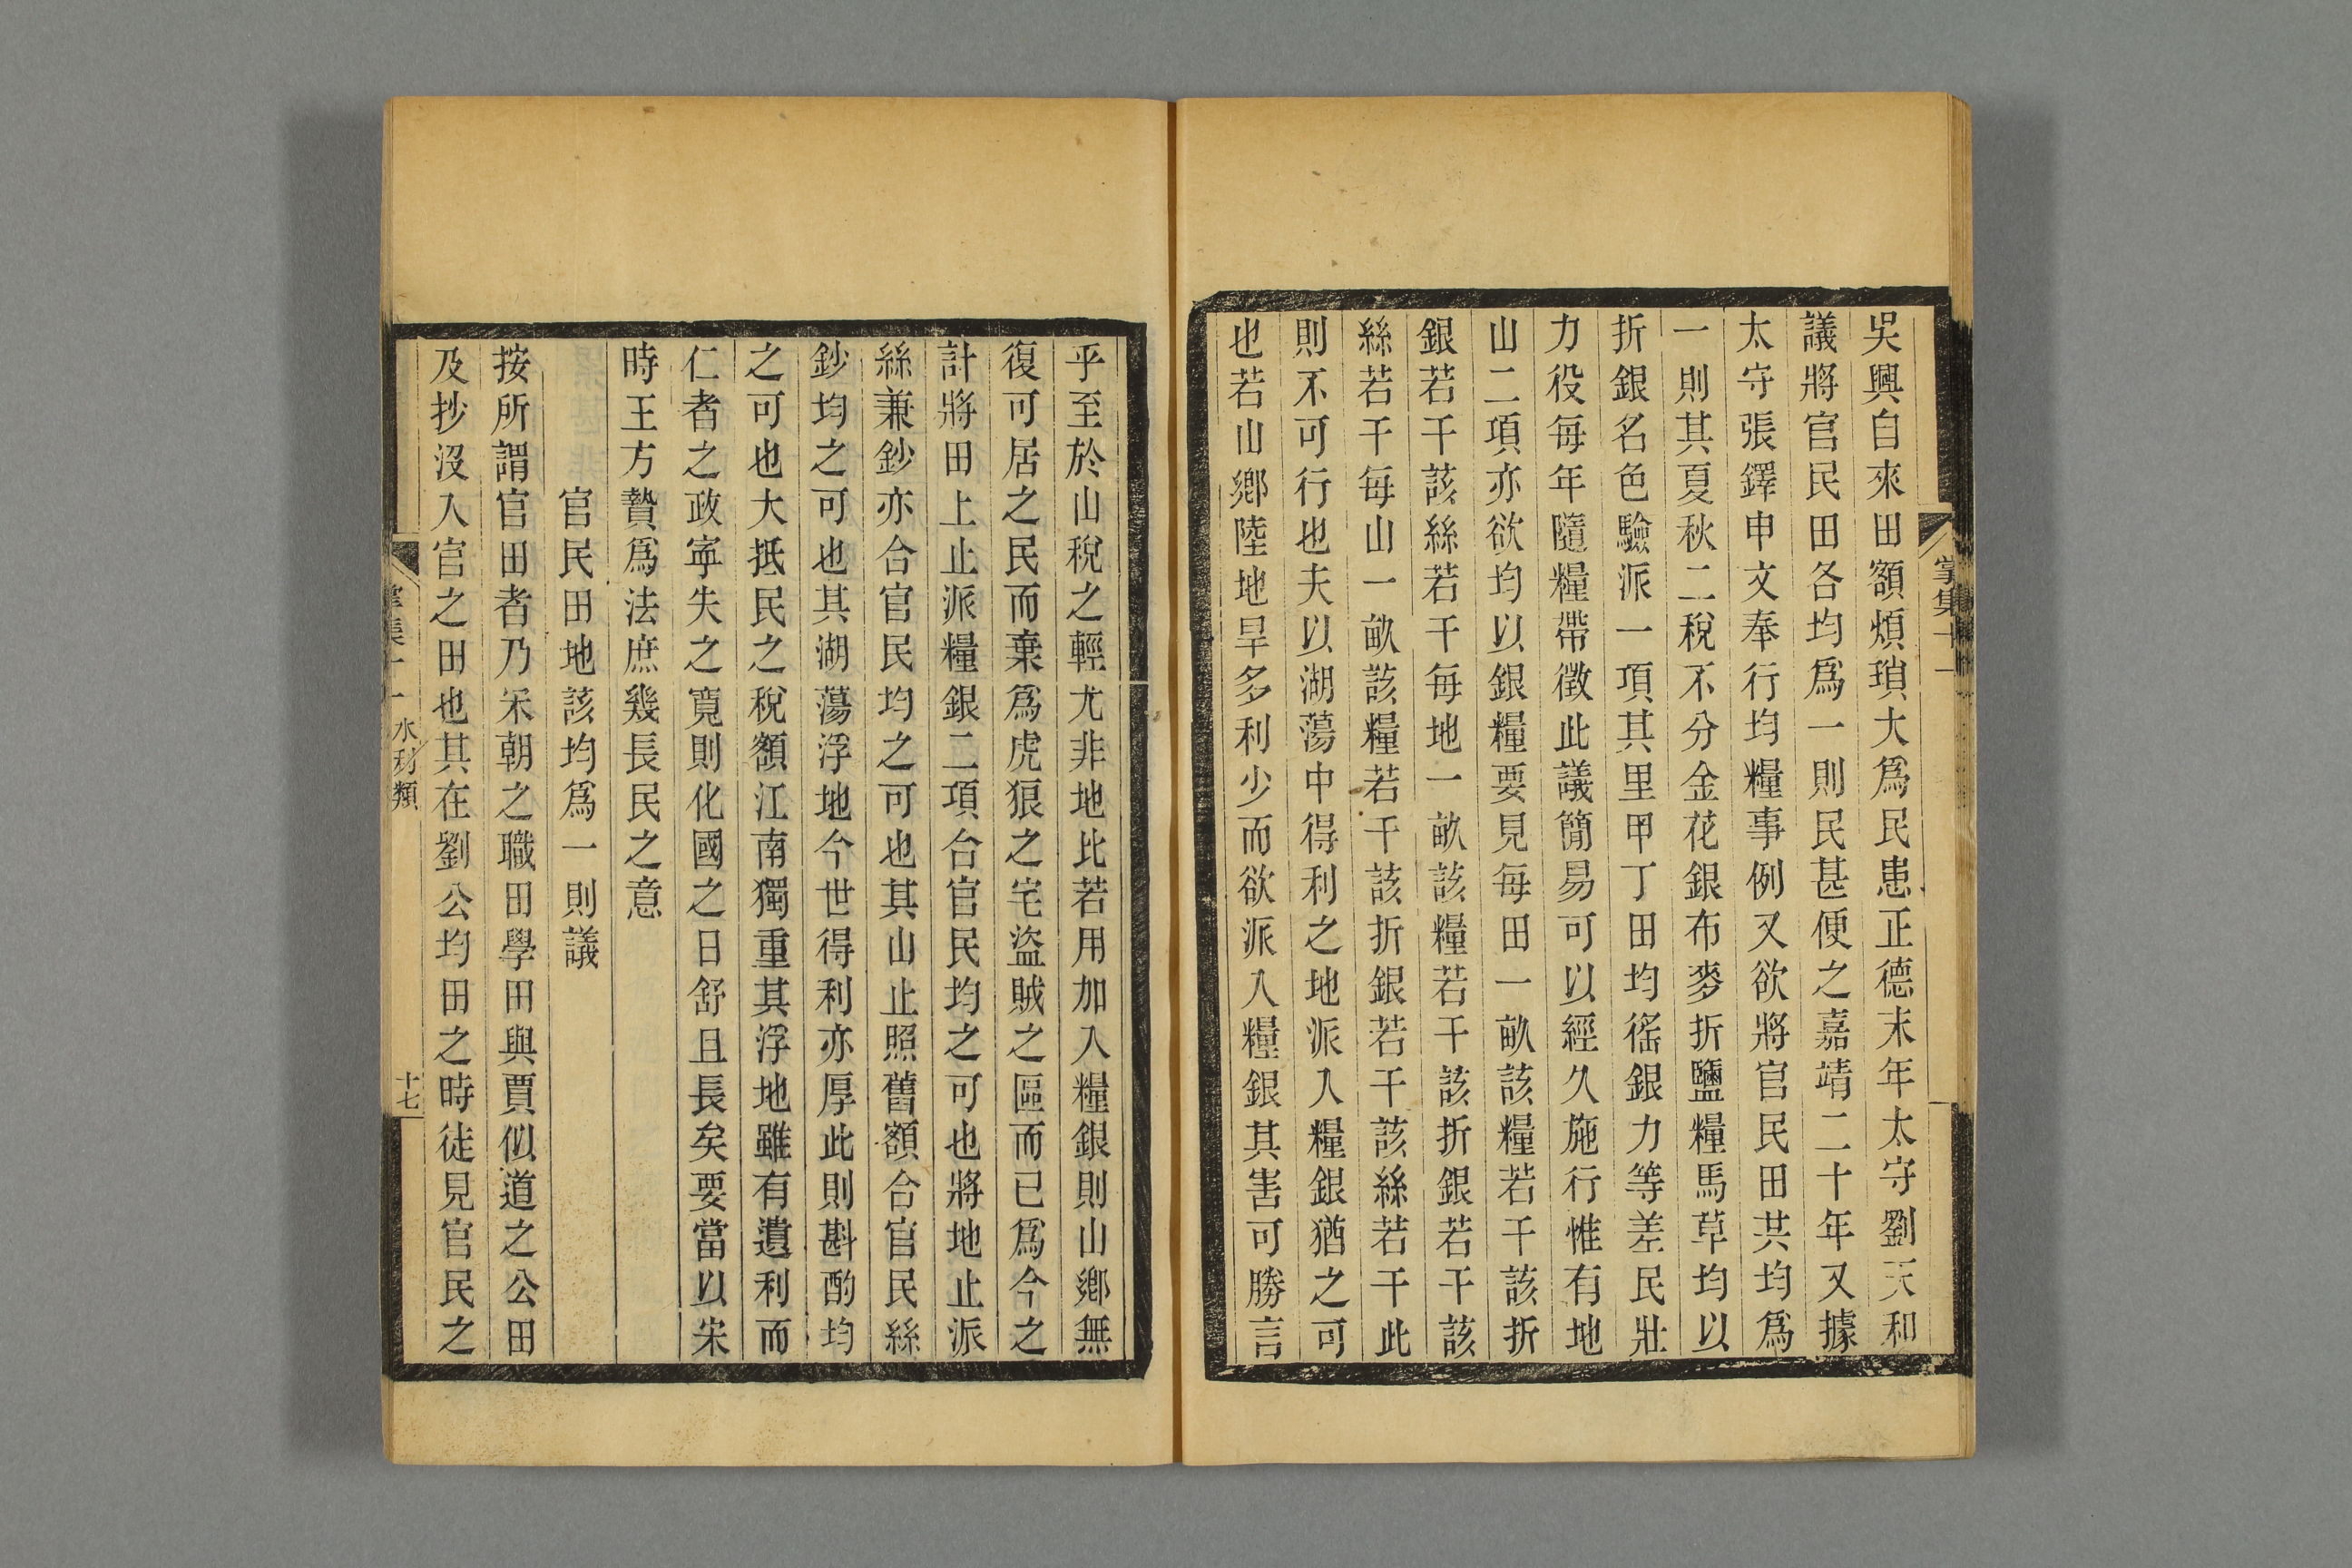 掌集十一
吳興自來田額煩瑣大爲民患正德末年太守劉天和
議將官民田各均爲一則民甚便之嘉靖二十年又據
太守張鐸申文奉行均糧事例又欲將官民田共均爲
一則其夏秋二稅不分金花銀布麥折鹽糧馬草均以
折銀名色驗派一項其里甲丁田均徭銀力等差民壯
力役每年隨糧帶徵此議簡易可以經久施行惟有地
山二項亦欲均以銀糧要見每田一畝該糧若干該折
銀若干該絲若干每地一畝該糧若干該折銀若干該
絲若干每山一畝該糧若干該折銀若干該絲若干此
則不可行也夫以湖蕩中得利之地派入糧銀猶之可
也若山鄉陸地旱多利少而欲派入糧銀其害可勝言
乎至於山稅之輕尤非地比若用加入糧銀則山鄉無
復可居之民而棄爲虎狼之宅盜賊之區而已爲今之
計將田上止派糧銀二項合官民均之可也將地止派
絲兼鈔亦合官民均之可也其山止照舊額合官民絲
鈔均之可也其湖蕩浮地今世得利亦厚此則斟酌均
之可也大抵民之稅額江南獨重其浮地雖有遺利而
仁者之政寧失之寬則化國之日舒且長矣要當以宋
時王方贄爲法庶幾長民之意
官民田地該均爲一則議
按所謂官田者乃宋朝之職田學田與賈似道之公田
及抄沒入官之田也其在劉公均田之時徒見官民之
掌集十一 水利類 十七